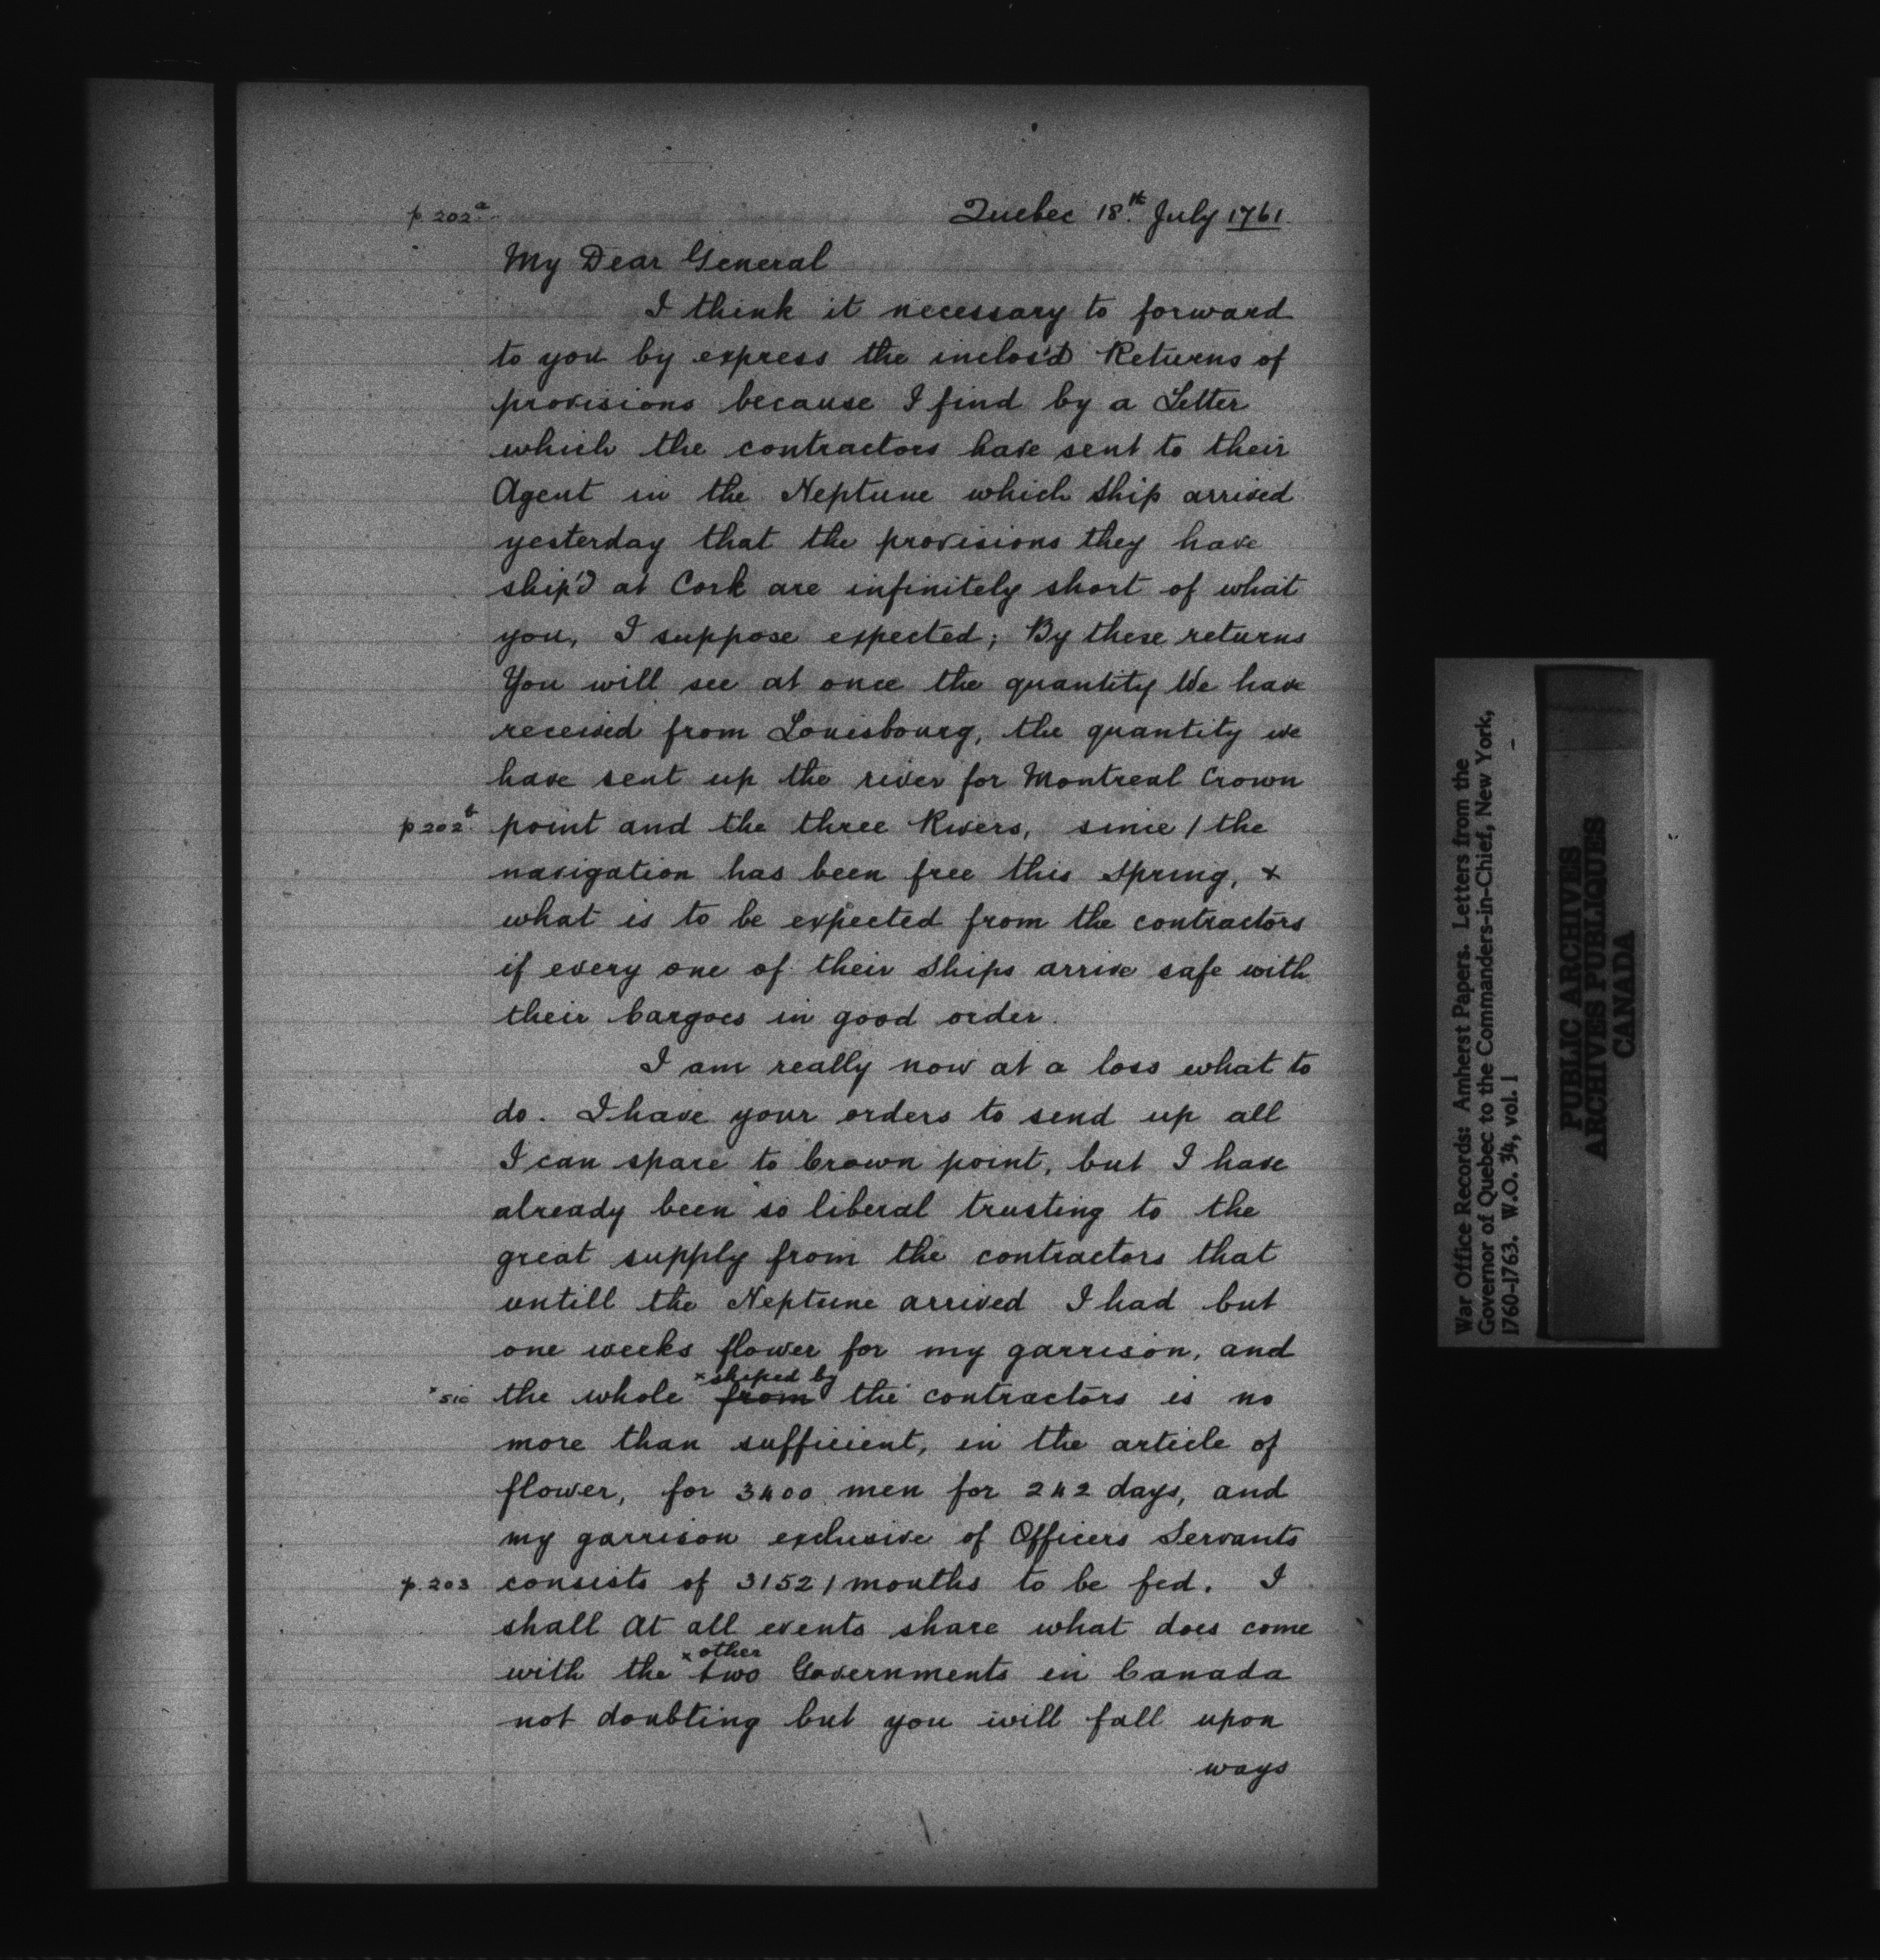 p. 202a
Quebec 18th. July 1761.
My Dear General
I think it necessary to forward
to you by express the inclos'd Returns of
provisions because I find by a Letter
which the contractors have sent to their
Agent in the Neptune which Ship arrived
yesterday that the provisions they have
ship'd at Cork are infinitely short of what
you, I suppose expected; By these returns
You will see at once the quantity We have
received from Louisbourg, the quantity we
have sent up the river for Montreal Crown
p 202b. point and the three Rivers, since / the
navigation has been free this Spring, &
what is to be expected from the contractors
if every one of their Ships arrive safe with
their Cargoes in good order.
I am really now at a loss what to
do. I have your orders to send up all
I can spare to Crown point, but I have
already been so liberal trusting to the
great supply from the contractors that
untill the Neptune arrived I had but
one weeks flower for my garrison, and
x shiped by
x sic the whole from the contractors is no
more than sufficient, in the article of
flower, for 3400 men for 242 days, and
my garrison exclusive of Officers Servants
p. 203 consists of 3152 / mouths to be fed. I
shall At all events share what does come
x other
with the two Governments in Canada
not doubting but you will fall upon
ways
War Office Records: Amherst Papers. Letters from the
Governor of Quebec to the Commanders-in-Chief, New York,
1760-1763. W.O. 34, vol. 1
PUBLIC ARCHIVES
ARCHIVES PUBLIQUES
CANADA